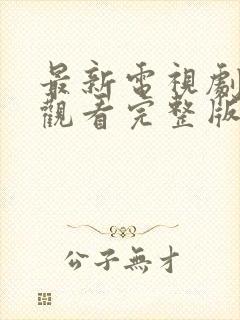 最新電視劇
觀看完整版
公子無才